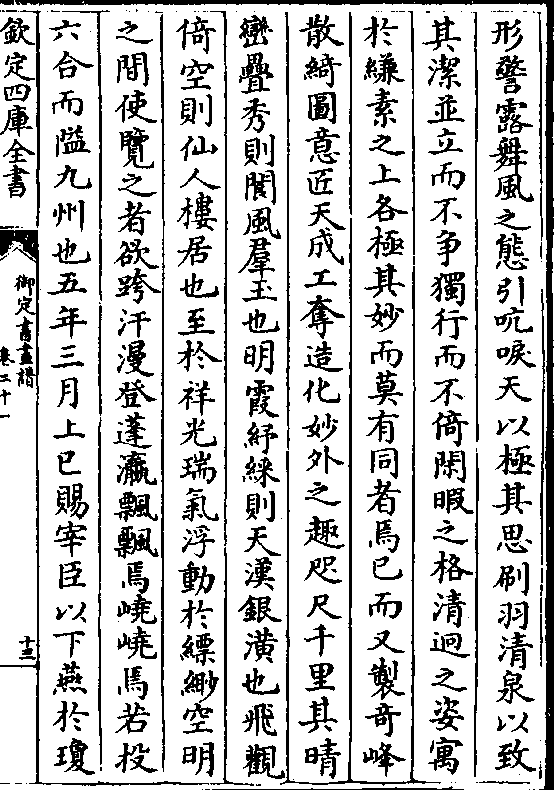 形警露舞風之態引吭唳天以極其思刷羽清泉以致
其潔並立而不争獨行而不倚閑暇之格清迥之姿寓
於縑素之上各極其妙而莫有同者焉已而又製奇峰
散綺圖意匠天成工奪造化妙外之趣咫尺千里其晴
巒疊秀則閬風羣玉也明霞紓綵則天漢銀潢也飛觀
倚空則仙人樓居也至於祥光瑞氣浮動於縹緲空明
之間使覽之者欲跨汗漫登蓬瀛飄飄焉嶢嶢焉若投
六合而隘九州也五年三月上巳賜宰臣以下燕於瓊
欽定四庫全書
御定書畫譜
卷二十一
十三